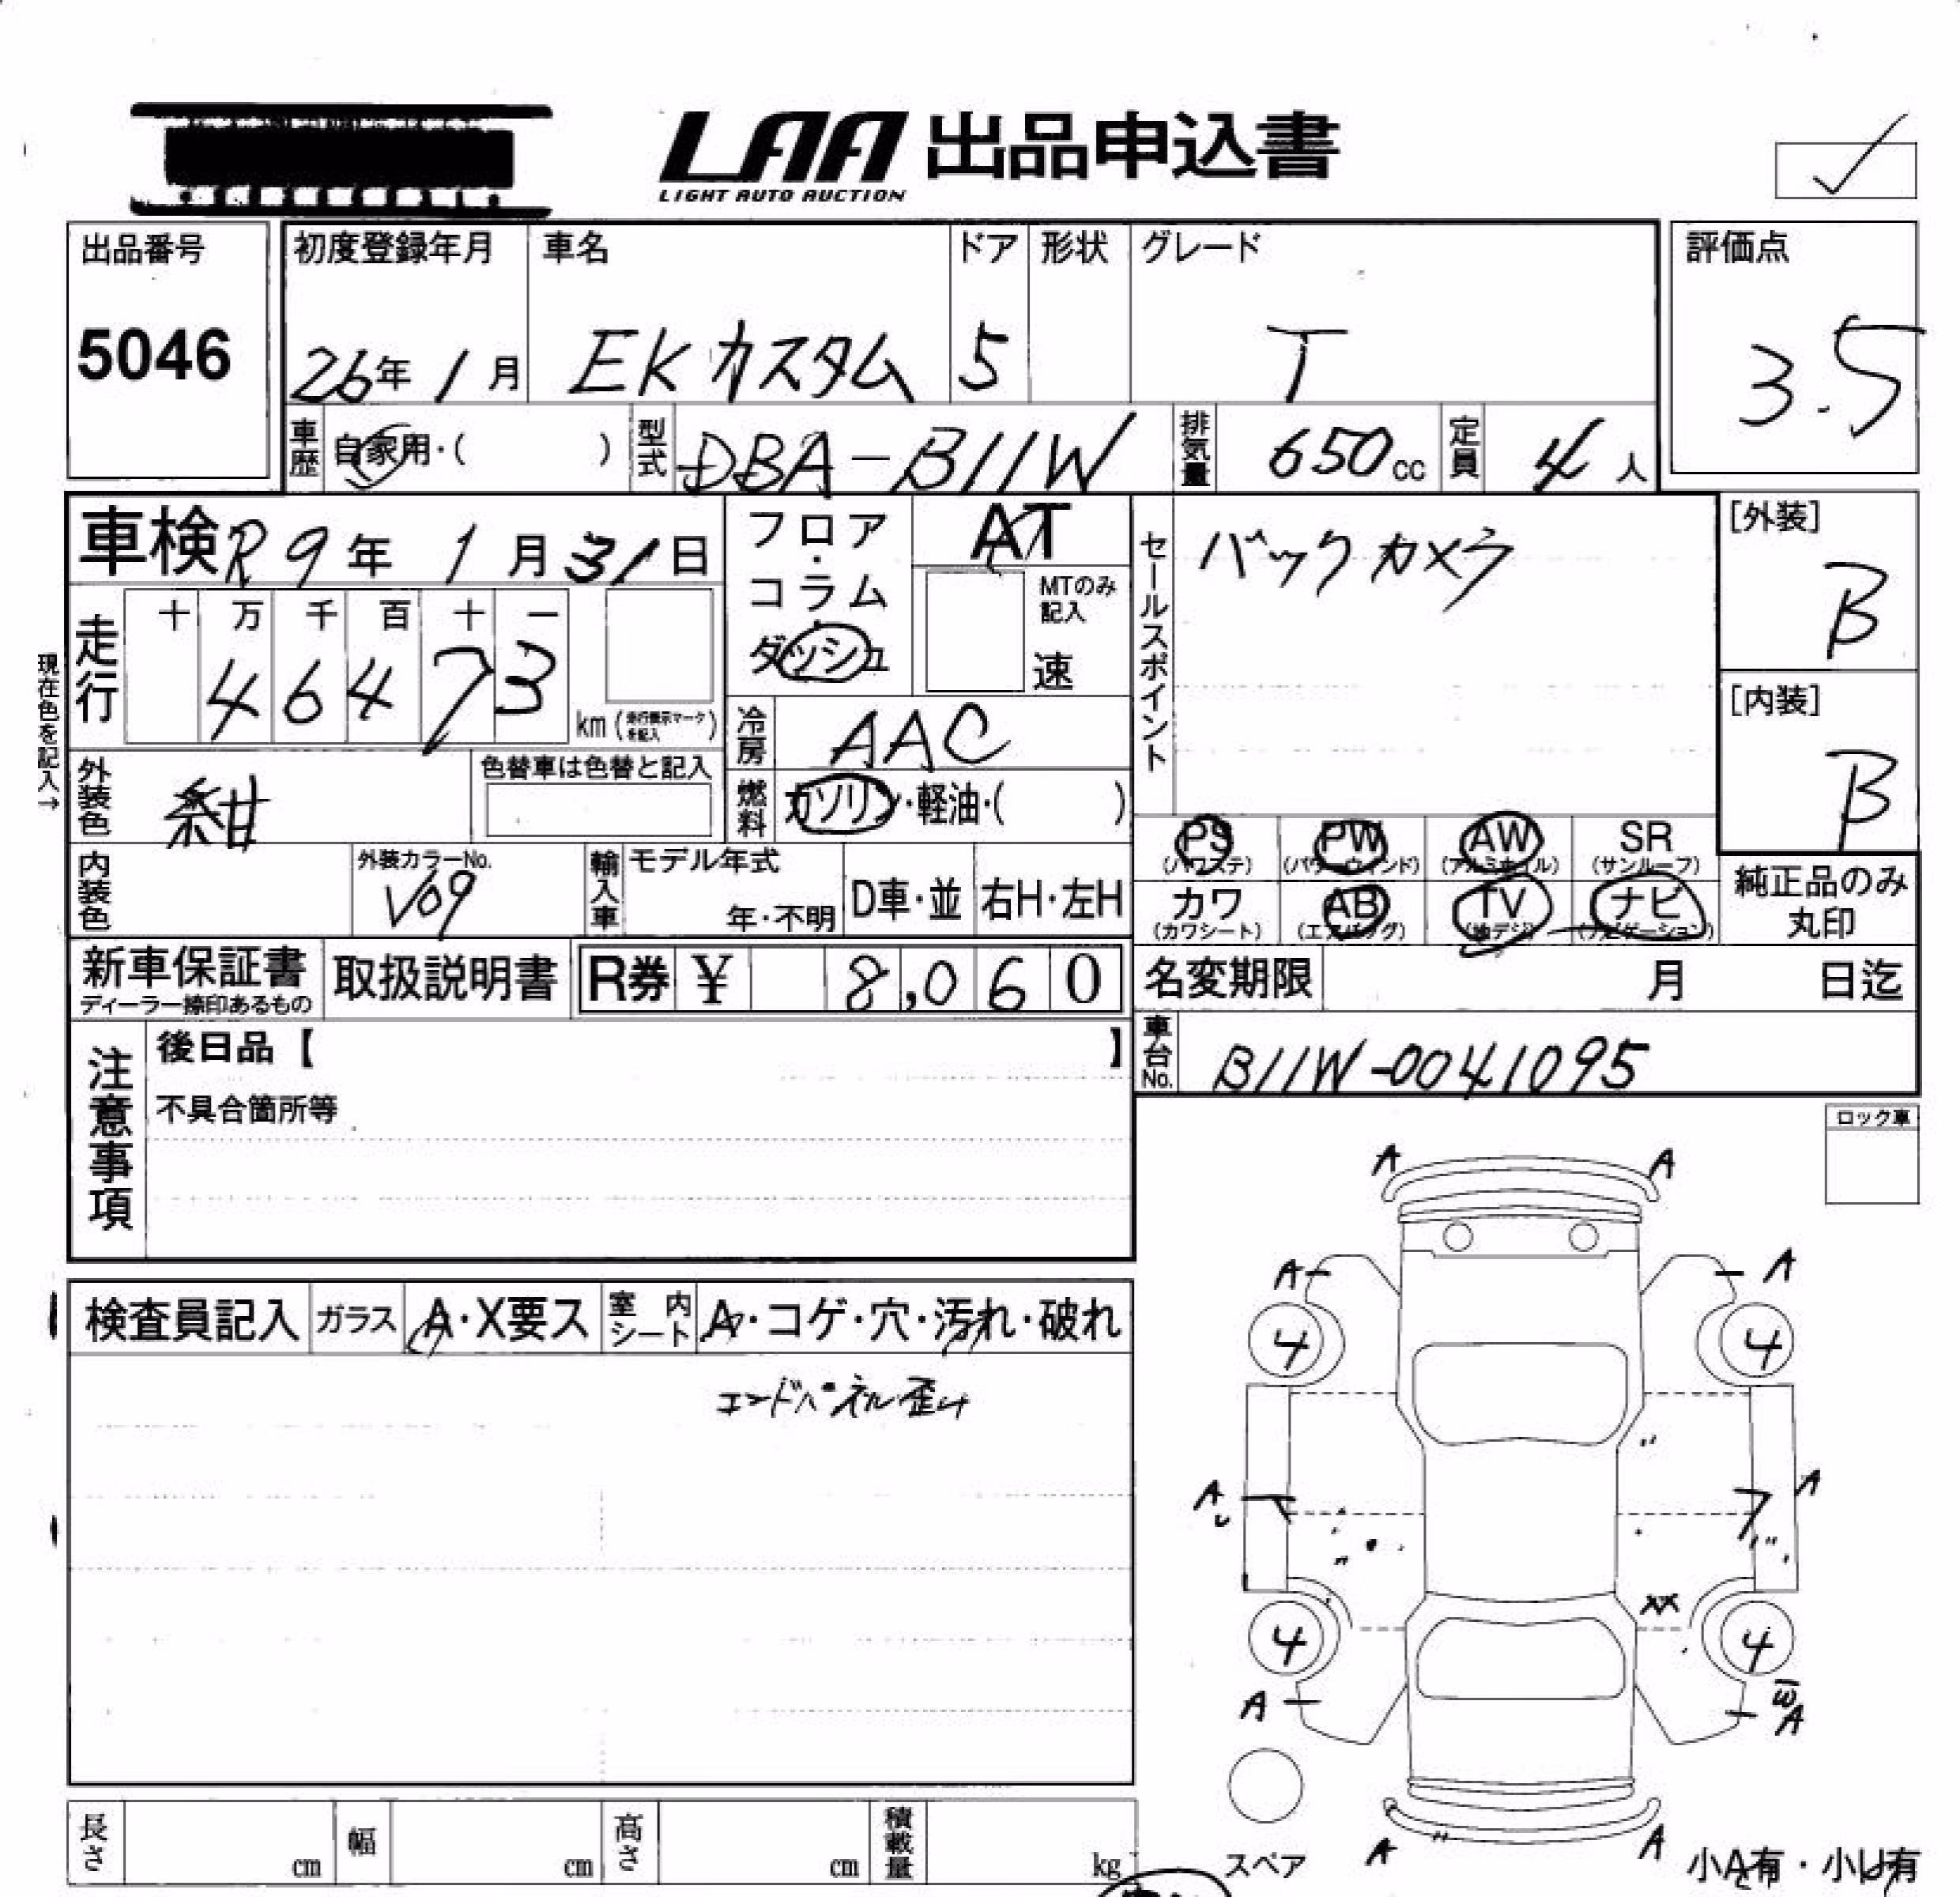 LAA 出品申込書
LIGHT AUTO AUCTION
出品番号
5046
初度登録年月
26年 1月
車名
EKカスタム
ドア
5
形状
グレード
T
評価点
3.5
車歴 自家用・( )
型式 DBA-B11W
排気量 650cc
定員 4人
車検 R9年 1月 31日
フロア・コラム・ダッシュ
AT
MTのみ記入
速
セールスポイント
バックカメラ
[外装]
B
[内装]
B
現在色を記入→
走行
十 万 千 百 十 一
4 6 4 7 3
km(走行表示マークを記入)
冷房 AAC
外装色 紺
色替車は色替と記入
燃料 ガソリン・軽油・( )
内装色
外装カラーNo.
V09
輸入車
モデル年式
年・不明
D車・並
右H・左H
PS
(パワステ)
PW
(パワーウィンド)
AW
(アルミホイル)
SR
(サンルーフ)
カワ
(カワシート)
AB
(エアバッグ)
TV
(地デジ)
ナビ
(ナビゲーション)
純正品のみ
丸印
新車保証書
ディーラー捺印あるもの
取扱説明書
R券 ¥ 8,060
名変期限 月 日迄
注意事項
後日品【 】
不具合箇所等
車台No. B11W-0041095
ロック車
検査員記入
ガラス A・X要ス
室内シート A・コゲ・穴・汚れ・破れ
エンドパネル歪み
A A
A A
4 4
A A
4 4
A W A
A A
スペア
小A有・小U有
長さ cm
幅 cm
高さ cm
積載量 kg